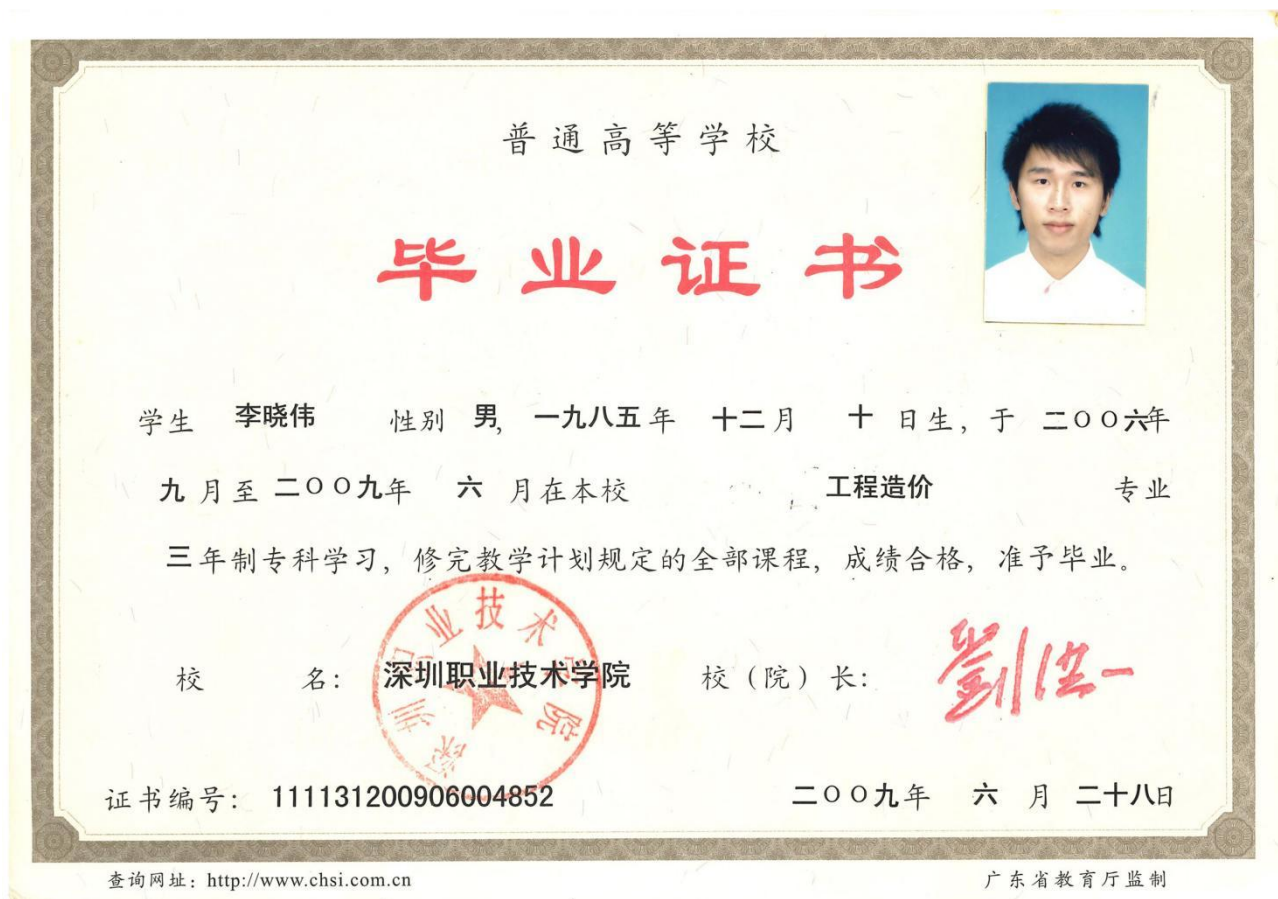 普通高等学校
毕业证书
学生 李晓伟 性别 男, 一九八五年 十二月 十 日生, 于 二〇〇六年
九月至二〇〇九年 六 月在本校 工程造价 专业
三年制专科学习, 修完教学计划规定的全部课程, 成绩合格, 准予毕业。
深圳职业技术学院
校 名: 深圳职业技术学院 校(院)长: 劉洪一
证书编号: 111131200906004852 二〇〇九年 六 月 二十八日
查询网址: http://www.chsi.com.cn 广东省教育厅监制